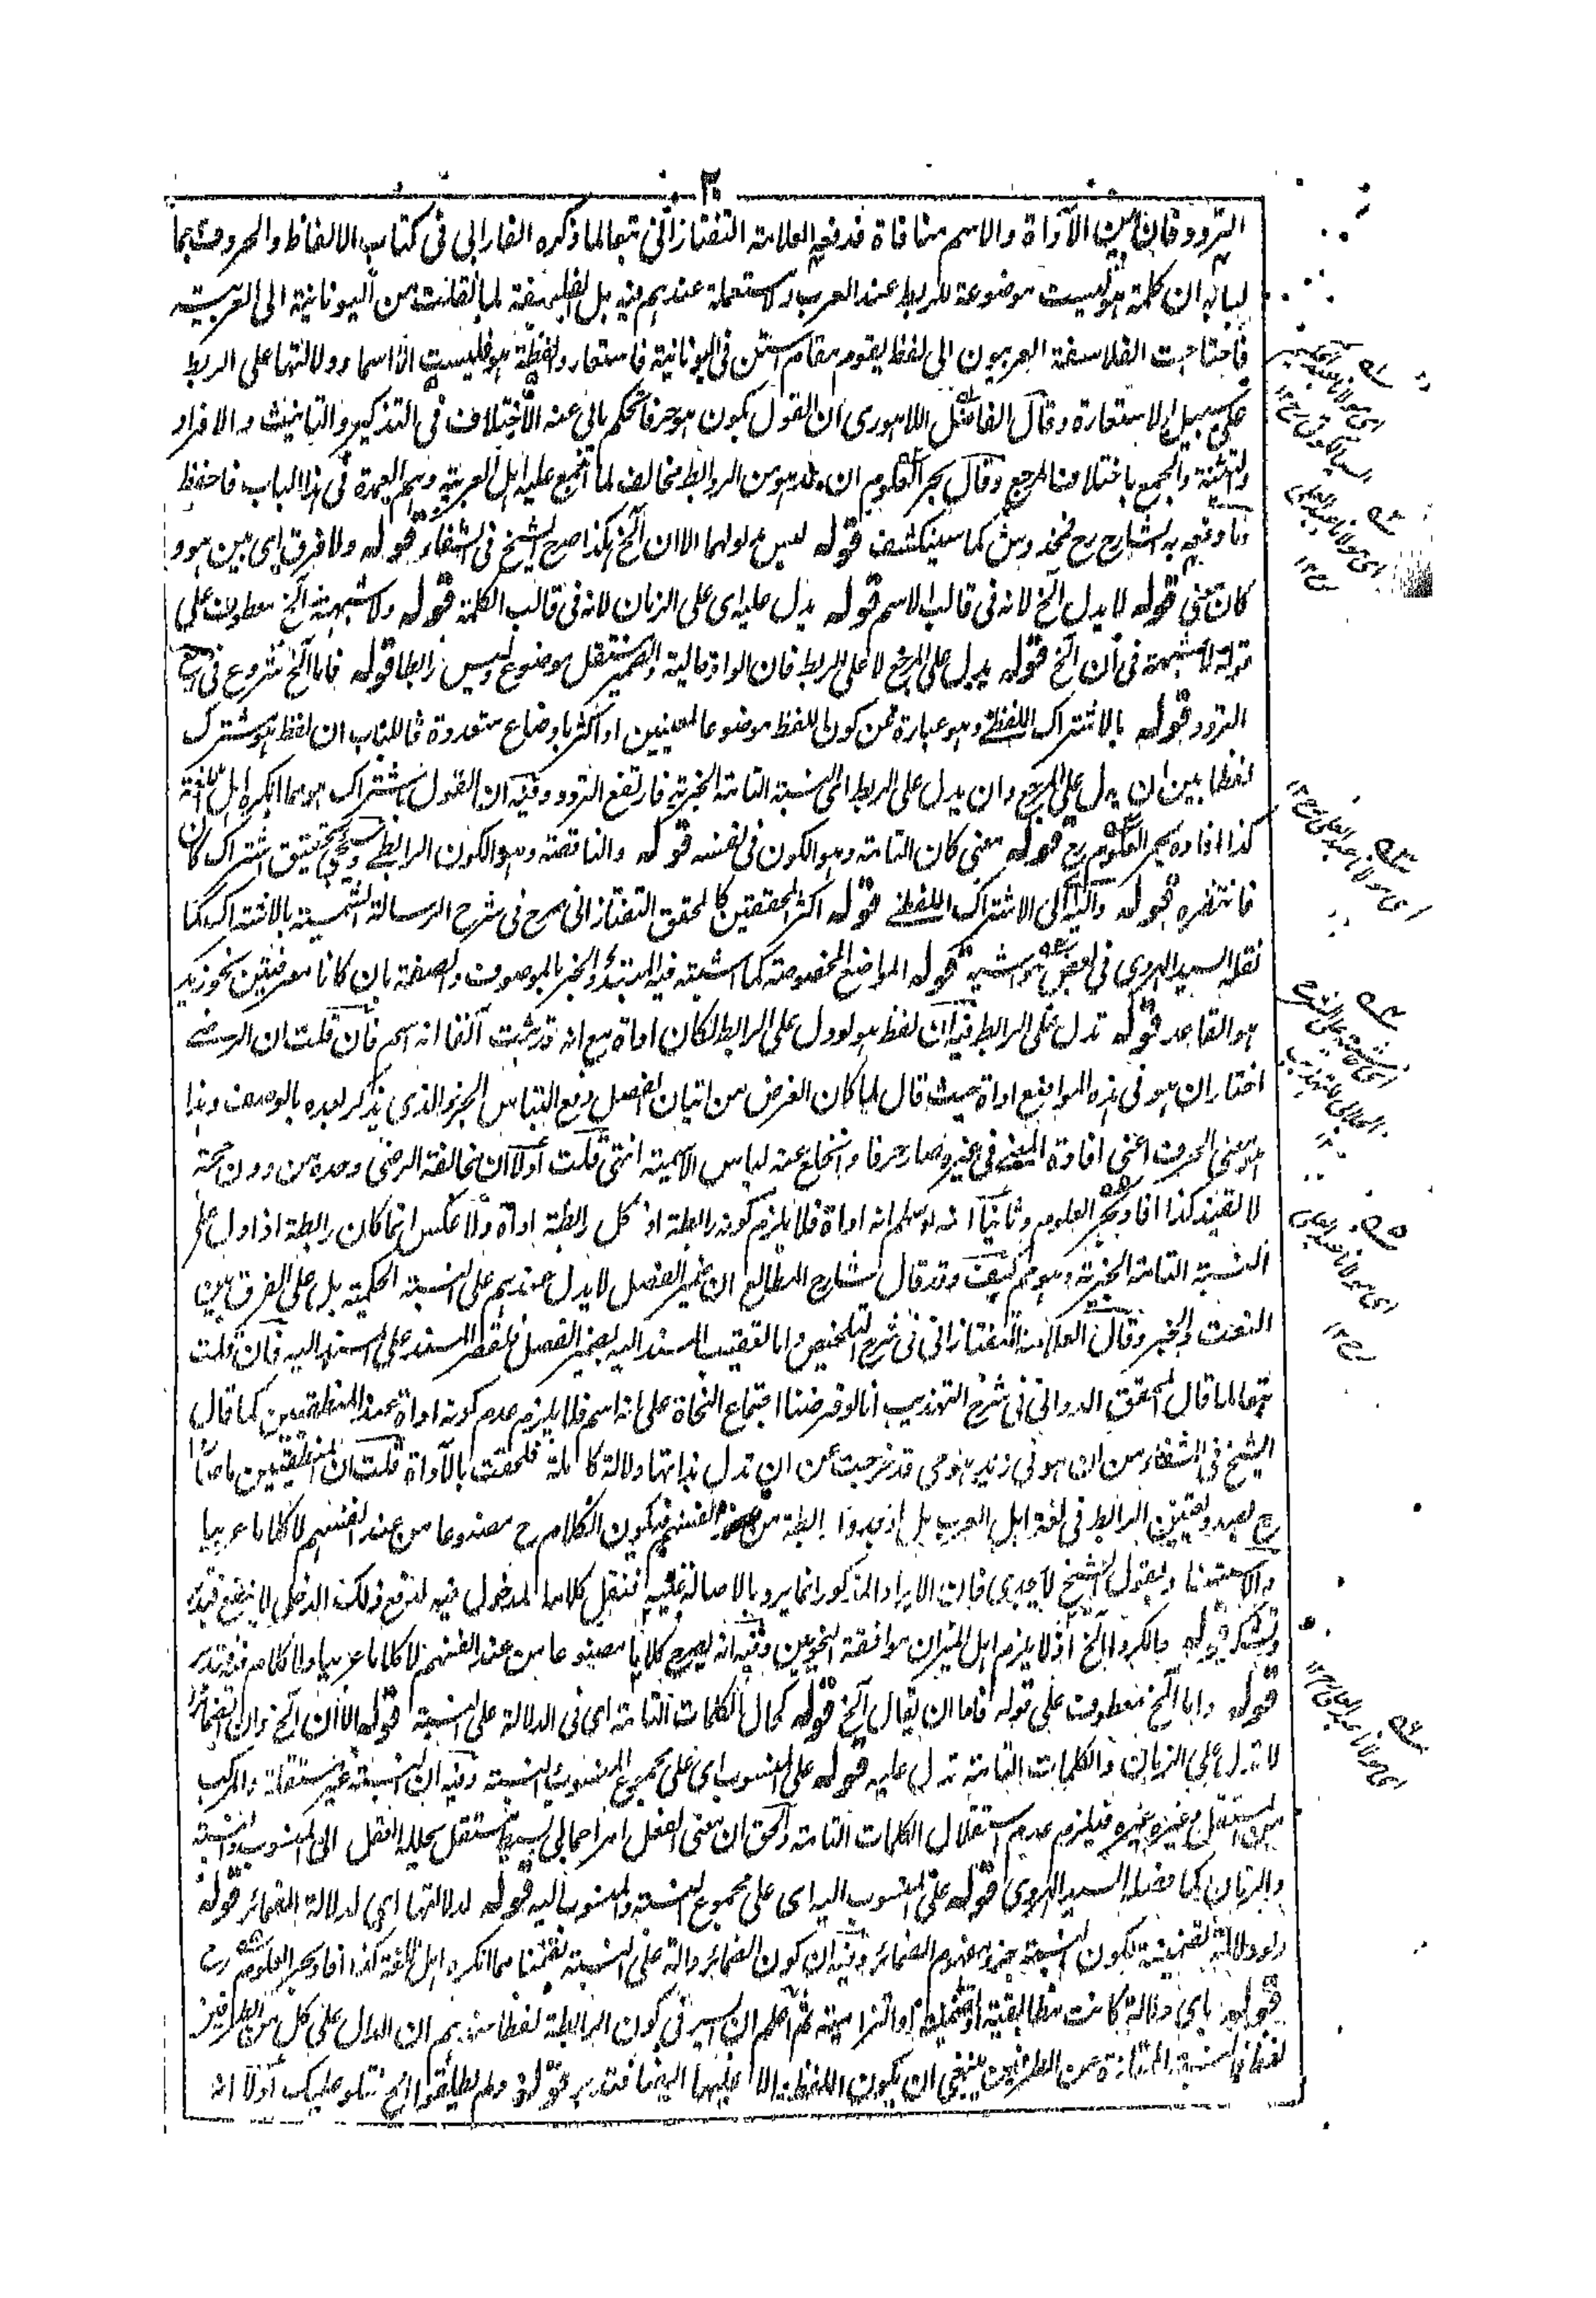 ٣
التردد فان بين الآداة والاسم منافاة فدفعه العلامة التفتازانى تبعا لما ذكره الفارابى فى كتاب الالفاظ والحروف بما
لبابه ان كلمة هو ليست موضوعة للربط عند العرب ولا مستعملة عندهم فيه بل الفلسفة لما نقلت من اليونانية الى العربية
فاحتاجت الفلاسفة العربيون الى لفظ يقوم مقام استن فى اليونانية فاستعاروا لفظة هو فليست الا اسما ودلالتها على الربط
على سبيل الاستعارة وقال الفاضل اللاهورى ان القول بكون هو حرفا تحكم يابى عنه الاختلاف فى التذكير والتانيث والافراد
والتثنية والجمع باختلاف المرجع وقال بحر العلوم ان عد هو من الروابط مخالف لما اجمع عليه اهل العربية وهم العمدة فى هذا الباب فاحفظ
وما دفعه به الشارح رح فمخدوش كما سينكشف قوله ليس مدلولهما الا ان آلخ هكذا صرح الشيخ فى الشفاء قوله ولا فرق اى بين هو و
كان معنى قوله لا يدل آلخ لانه فى قالب الاسم قوله يدل عليه اى على الزمان لانه فى قالب الكلمة قوله ولا شبهة آلخ معطوف على
قوله لا شبهة فى ان آلخ قوله يدل على المرجع لا على الربط فان الواو حالية والضمير مستقل موضوع وليس رابطا قوله فاما آلخ شروع فى دفع
التردد قوله بالاشتراك اللفظى وهو عبارة عن كون اللفظ موضوعا لمعنيين او اكثر باوضاع متعددة فاللباب ان لفظ هو مشترك
لفظا بين ان يدل على المرجع وان يدل على الربط اى النسبة التامة الخبرية فارتفع التردد وفيه ان القول باشتراك هو مما انكره اهل اللغة
كذا افاده بحر العلوم رح قوله معنى كان التامة وهو الكون فى نفسه قوله والناقصة وهو الكون الرابطى وسيجئ تحقيق اشتراك كان
فانتظره قوله واليه اى الى الاشتراك اللفظى قوله اكثر المحققين كالمحقق التفتازانى صرح فى شرح الرسالة الشمسية بالاشتراك كما
نقله السيد الهروى فى بعض حواشيه قوله المواضع المخصوصة كما اشبته فيه المبتدأ والخبر بالموصوف والصفة بان كانا معرفتين نحو زيد
هو القاعد قوله تدل على الرابط فيه ان لفظ هو لو دل على الرابط لكان اداة مع انه قد ثبت آنفا انه اسم فان قلت ان الرضى
اختار ان هو فى هذه المواضع اداة حيث قال لما كان الغرض من اتيان الفصل دفع التباس الخبر الذى يذكر بعده بالوصف وهذا
هو معنى الحرف اعنى افادة المعنى فى غيره صار حرفا وانخلع عنه لباس الاسمية انتهى قلت أولا ان مخالفة الرضى وحده من دون حجة
لا تفيد كذا افاد بحر العلوم وثانيا انه لو سلم انه اداة فلا يلزم كونه رابطة اذ كل رابطة اداة ولا عكس انما كان رابطة اذا دل على
النسبة التامة الخبرية وهو مم كيف وقد قال شارح المطالع ان ضمير الفصل لا يدل عندهم على النسبة الحكمية بل على الفرق بين
النعت والخبر وقال العلامة التفتازانى فى شرح التلخيص واما تعقيب المسند اليه بضمير الفصل فلقصر المسند على المسند اليه فان قلت
تبعا لما قال المحقق الدوانى فى شرح التهذيب انا لو فرضنا اجتماع النحاة على انه اسم فلا يلزم عدم كونه اداة عند المنطقيين كما قال
الشيخ فى الشفاء من ان هو فى زيد هو حى قد خرجت عن ان تدل بذاتها دلالة كاملة فلحقت بالآداة قلت ان المنطقيين ما صاروا
رح بصدد تعيين الرابط فى لغة اهل العرب بل اوجدوا رابطة من عند انفسهم فيكون الكلام رح مصنوعا من عند انفسهم لا كلاما عربيا
والاستناد بقول الشيخ لا يجدى فان الايراد المذكور انما يرد بالاصالة عليه فنقل كلامه المدخول فيه لدفع ذلك الدخل لا ينفع فتدبر
وتشكر قوله ما لكروا آلخ اذ لا يلزم اهل الميزان موافقة النحويين وفيه انه يصير كلاما مصنوعا من عند انفسهم لا كلاما عربيا والكلام فيه فتدبر
قوله واما آلخ معطوف على قوله فاما ان يقال آلخ قوله كحال الكلمات التامة اى فى الدلالة على النسبة قوله الا ان آلخ وان الضمائر
لا تدل على الزمان والكلمات التامة تدل عليه قوله على المنسوب اى على مجموع المنسوب والنسبة وفيه ان النسبة غير مستقلة والمركب
من المستقل وغيره غيره فيلزم عدم استقلال الكلمات التامة والحق ان معنى الفعل امر اجمالى بسيط مستقل يحلله العقل الى المنسوب والنسبة
والزمان كما فصله السيد الهروى قوله على المنسوب اليه اى على مجموع النسبة والمنسوب اليه قوله لدلالتها اى لدلالة الضمائر قوله
ولو دلالة تضمنية بكون النسبة جزء مفهوم الضمائر وفيه ان كون الضمائر دالة على النسبة تضمنا مما انكره اهل اللغة كذا افاد بحر العلوم رح
قوله باى دلالة كانت مطابقية او تضمنية او التزامية ثم اعلم ان السر فى كون الرابطة لفظا منهم ان الدال على كل من الطرفين
لفظ فالنسبة الممتازة عن الطرفين ينبغى ان يكون اللفظ دالا عليها ايضا فتدبر قوله ولم يطلقوا آلخ نتلو عليك أولا انه
اى مولانا عبد الحكيم
السيالكوتى ١٢
اى مولانا عبد العلى
رح ١٢
اى مولانا عبد العلى رح ١٢
اى حاشيته على الشرح
الجلالى للتهذيب
١٢
اى مولانا عبد العلى
رح ١٢
اى مولانا عبد العلى رح ١٢